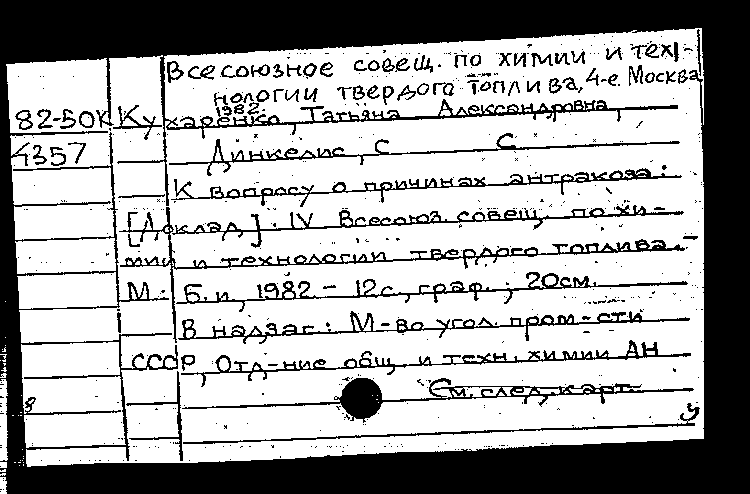 Всесоюзное совещ. по химии и тех-
нологии твердого топлива, 4-е. Москва
1982.
82-50К Кухаренко, Татьяна Александровна,
4357 Динкелис, С С
К вопросу о причинах антракоза:
[Доклад]. IV Всесоюз. совещ. по хи-
мии и технологии твердого топлива.-
М.: Б. и, 1982.- 12с., граф.; 20см.
В надзаг: М-во угол. пром-сти
СССР, Отд-ние общ. и техн. химии АН
См. след. карт.